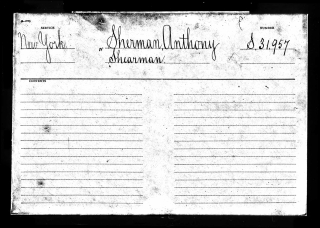 SERVICE
NUMBER
New York Sherman, Anthony S.31,957
Shearman
CONTENTS